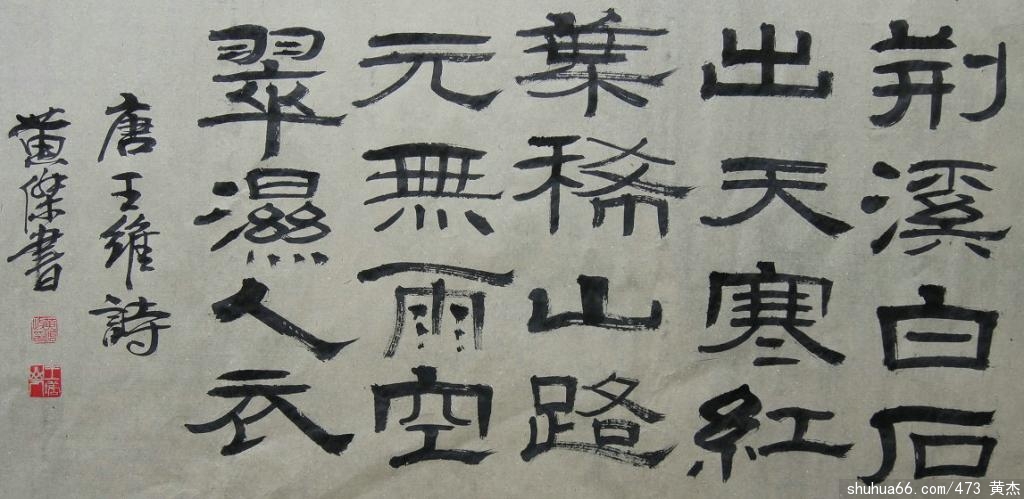 荆溪白石
出天寒紅
葉稀山路
元無雨空
翠濕人衣
唐王維詩
黄傑書
shuhua66.com/473 黄杰